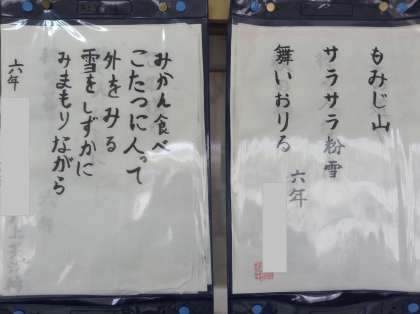 もみじ山
サラサラ粉雪
舞いおりる
六年
みかん食べ
こたつに入って
外をみる
雪をしずかに
みまもりながら
六年